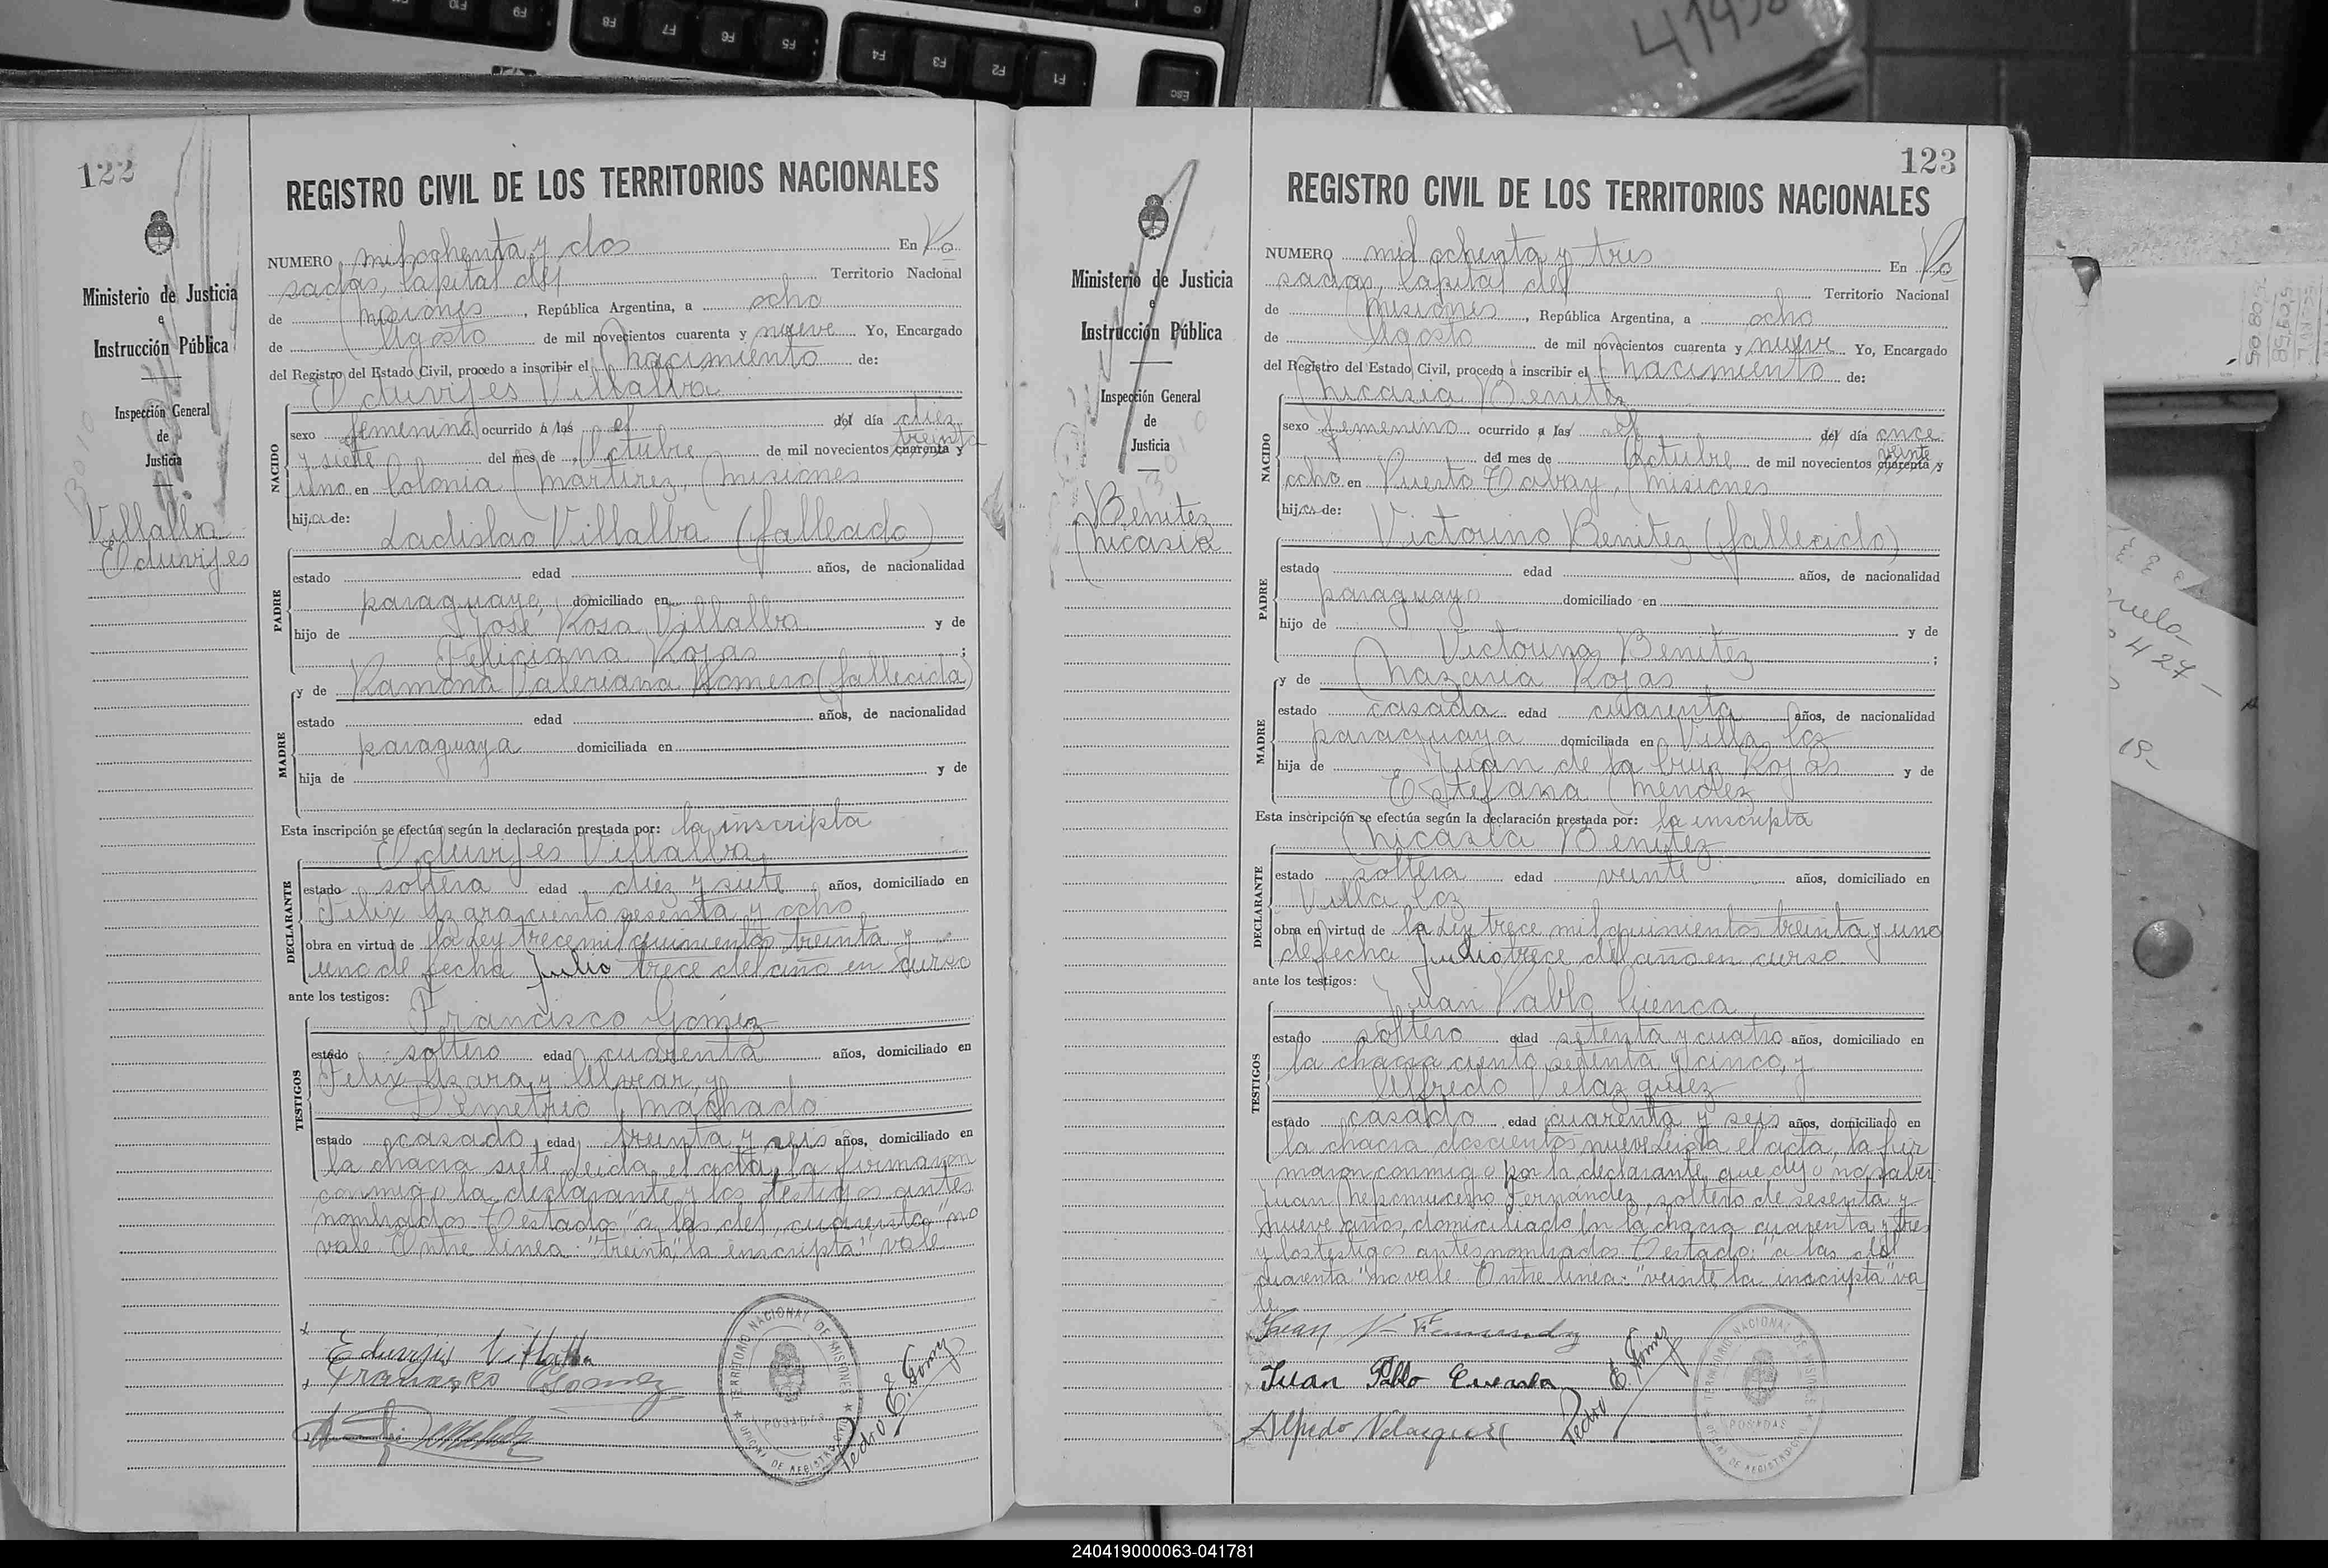 122
REGISTRO CIVIL DE LOS TERRITORIOS NACIONALES
Ministerio de Justicia
e
Instrucción Pública
Inspección General
de
Justicia
Villalba
Eduvijes
NUMERO mil ochenta y dos En Po
sadas, Capital del Territorio Nacional
de Misiones, República Argentina, a ocho
de Agosto de mil novecientos cuarenta y nueve Yo, Encargado
del Registro del Estado Civil, procedo a inscribir el nacimiento de:
Eduvijes Villalba
NACIDO
sexo femenino ocurrido a las el del día diez
treinta
y siete del mes de Octubre de mil novecientos cuarenta y
uno en Colonia Martirez, Misiones
hija de:
Ladislao Villalba (fallecido)
PADRE
estado edad años, de nacionalidad
paraguayo domiciliado en
hijo de José Rosa Villalba y de
Feliciana Rojas ;
y de Ramona Valeriana Romero (fallecida)
MADRE
estado edad años, de nacionalidad
paraguaya domiciliada en
hija de y de
Esta inscripción se efectúa según la declaración prestada por: la inscripta
Eduvijes Villalba
DECLARANTE
estado soltera edad diez y siete años, domiciliado en
Felix Azara ciento sesenta y ocho
obra en virtud de la Ley trece mil quinientos treinta y
uno de fecha Julio trece del año en curso
ante los testigos:
Francisco Gómez
TESTIGOS
estado soltero edad cuarenta años, domiciliado en
Felix Azara y Alvear, y
Demetrio Machado
estado casado, edad treinta y seis años, domiciliado en
la chacra siete. Leida el acta, la firmaron
conmigo la declarante y los testigos antes
nombrados. Testado: "a las del, cuarenta" no
vale. Entre linea: "treinta, la inscripta" vale
Eduvijis Villalba
Francisco Gomez
TERRITORIO NACIONAL DE MISIONES
POSADAS
Pedro E. Gomez
123
REGISTRO CIVIL DE LOS TERRITORIOS NACIONALES
Ministerio de Justicia
e
Instrucción Pública
Inspección General
de
Justicia
Benitez
Nicasia
NUMERO mil ochenta y tres En Po
sadas, Capital del Territorio Nacional
de Misiones, República Argentina, a ocho
de Agosto de mil novecientos cuarenta y nueve Yo, Encargado
del Registro del Estado Civil, procedo a inscribir el nacimiento de:
Nicasia Benitez
NACIDO
sexo femenino ocurrido a las el del día once
veinte
del mes de Octubre de mil novecientos cuarenta y
ocho en Puerto Tabay, Misiones
hija de:
Victorino Benitez (fallecido)
PADRE
estado edad años, de nacionalidad
paraguayo domiciliado en
hijo de y de
Victorina Benitez ;
y de Nazaria Rojas
MADRE
estado casada edad cuarenta años, de nacionalidad
paraguaya domiciliada en Villa Coz
hija de Juan de la Cruz Rojas y de
Estefana Mendez
Esta inscripción se efectúa según la declaración prestada por: la inscripta
Nicasia Benitez
DECLARANTE
estado soltera edad veinte años, domiciliado en
Villa Coz
obra en virtud de la Ley trece mil quinientos treinta y uno
de fecha Julio trece del año en curso
ante los testigos:
Juan Pablo Cuenca
TESTIGOS
estado soltero edad setenta y cuatro años, domiciliado en
la chacra ciento setenta y cinco, y
Alfredo Velazquez
estado casado edad cuarenta y seis años, domiciliado en
la chacra doscientos nueve. Leida el acta, la fir
maron conmigo por la declarante, que dijo no saber
Juan Nepomuceno Fernández, soltero de sesenta y
nueve años, domiciliado en la chacra cuarenta y tres
y los testigos antes nombrados. Testado: "a las del
cuarenta" no vale. Entre linea: "veinte, la inscripta" va
le.
Juan N Fernandez
Juan Pablo Cuenca
Alfredo Velazquez
Pedro E. Gomez
TERRITORIO NACIONAL DE MISIONES
POSADAS
240419000063-041781